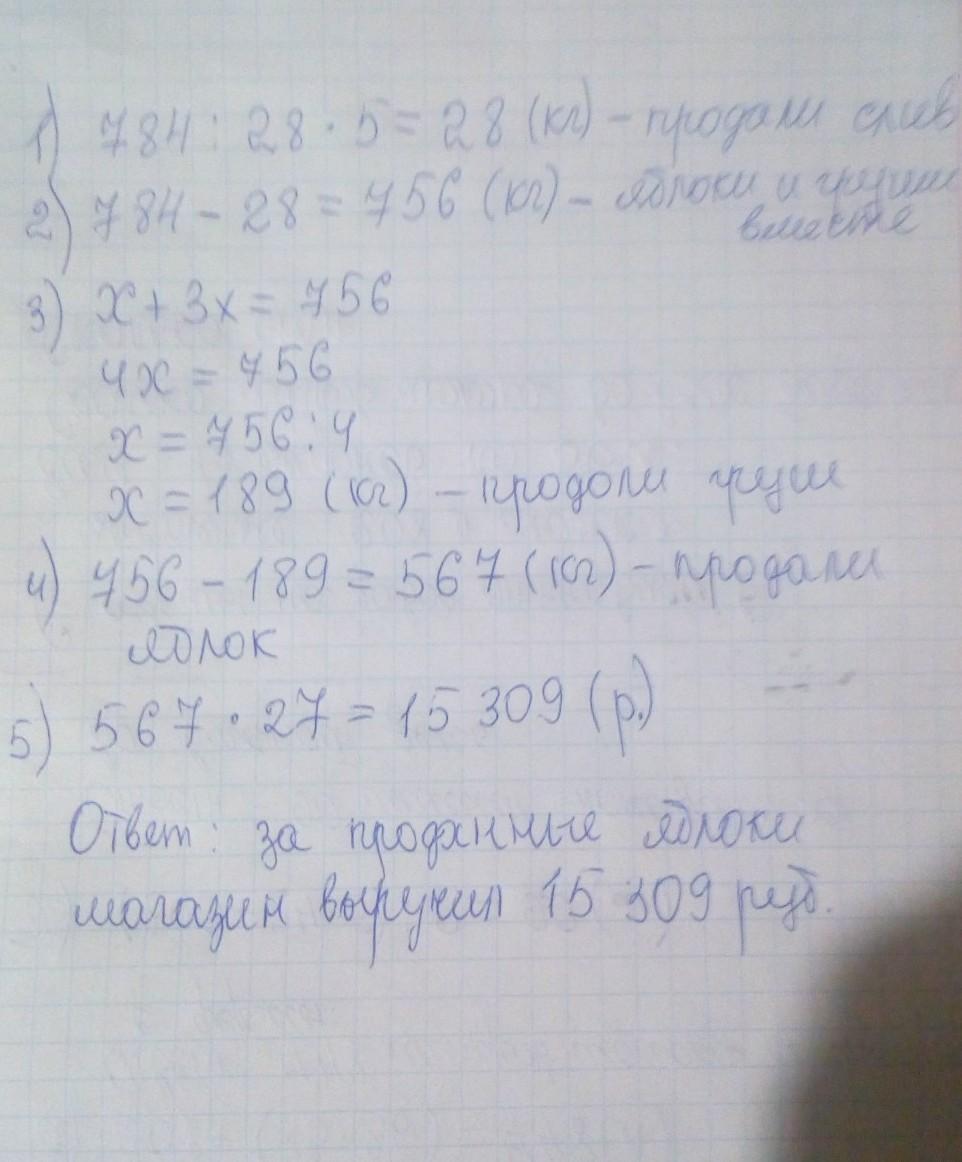 1) 784 : 28 · 5 = 28 (кг) - продали слив
2) 784 - 28 = 756 (кг) - яблоки и груши
вместе
3) x + 3x = 756
4x = 756
x = 756 : 4
x = 189 (кг) - продоли груш
4) 756 - 189 = 567 (кг) - продали
яблок
5) 567 · 27 = 15 309 (р.)
Ответ: за проданные яблоки
магазин выручил 15 309 руб.